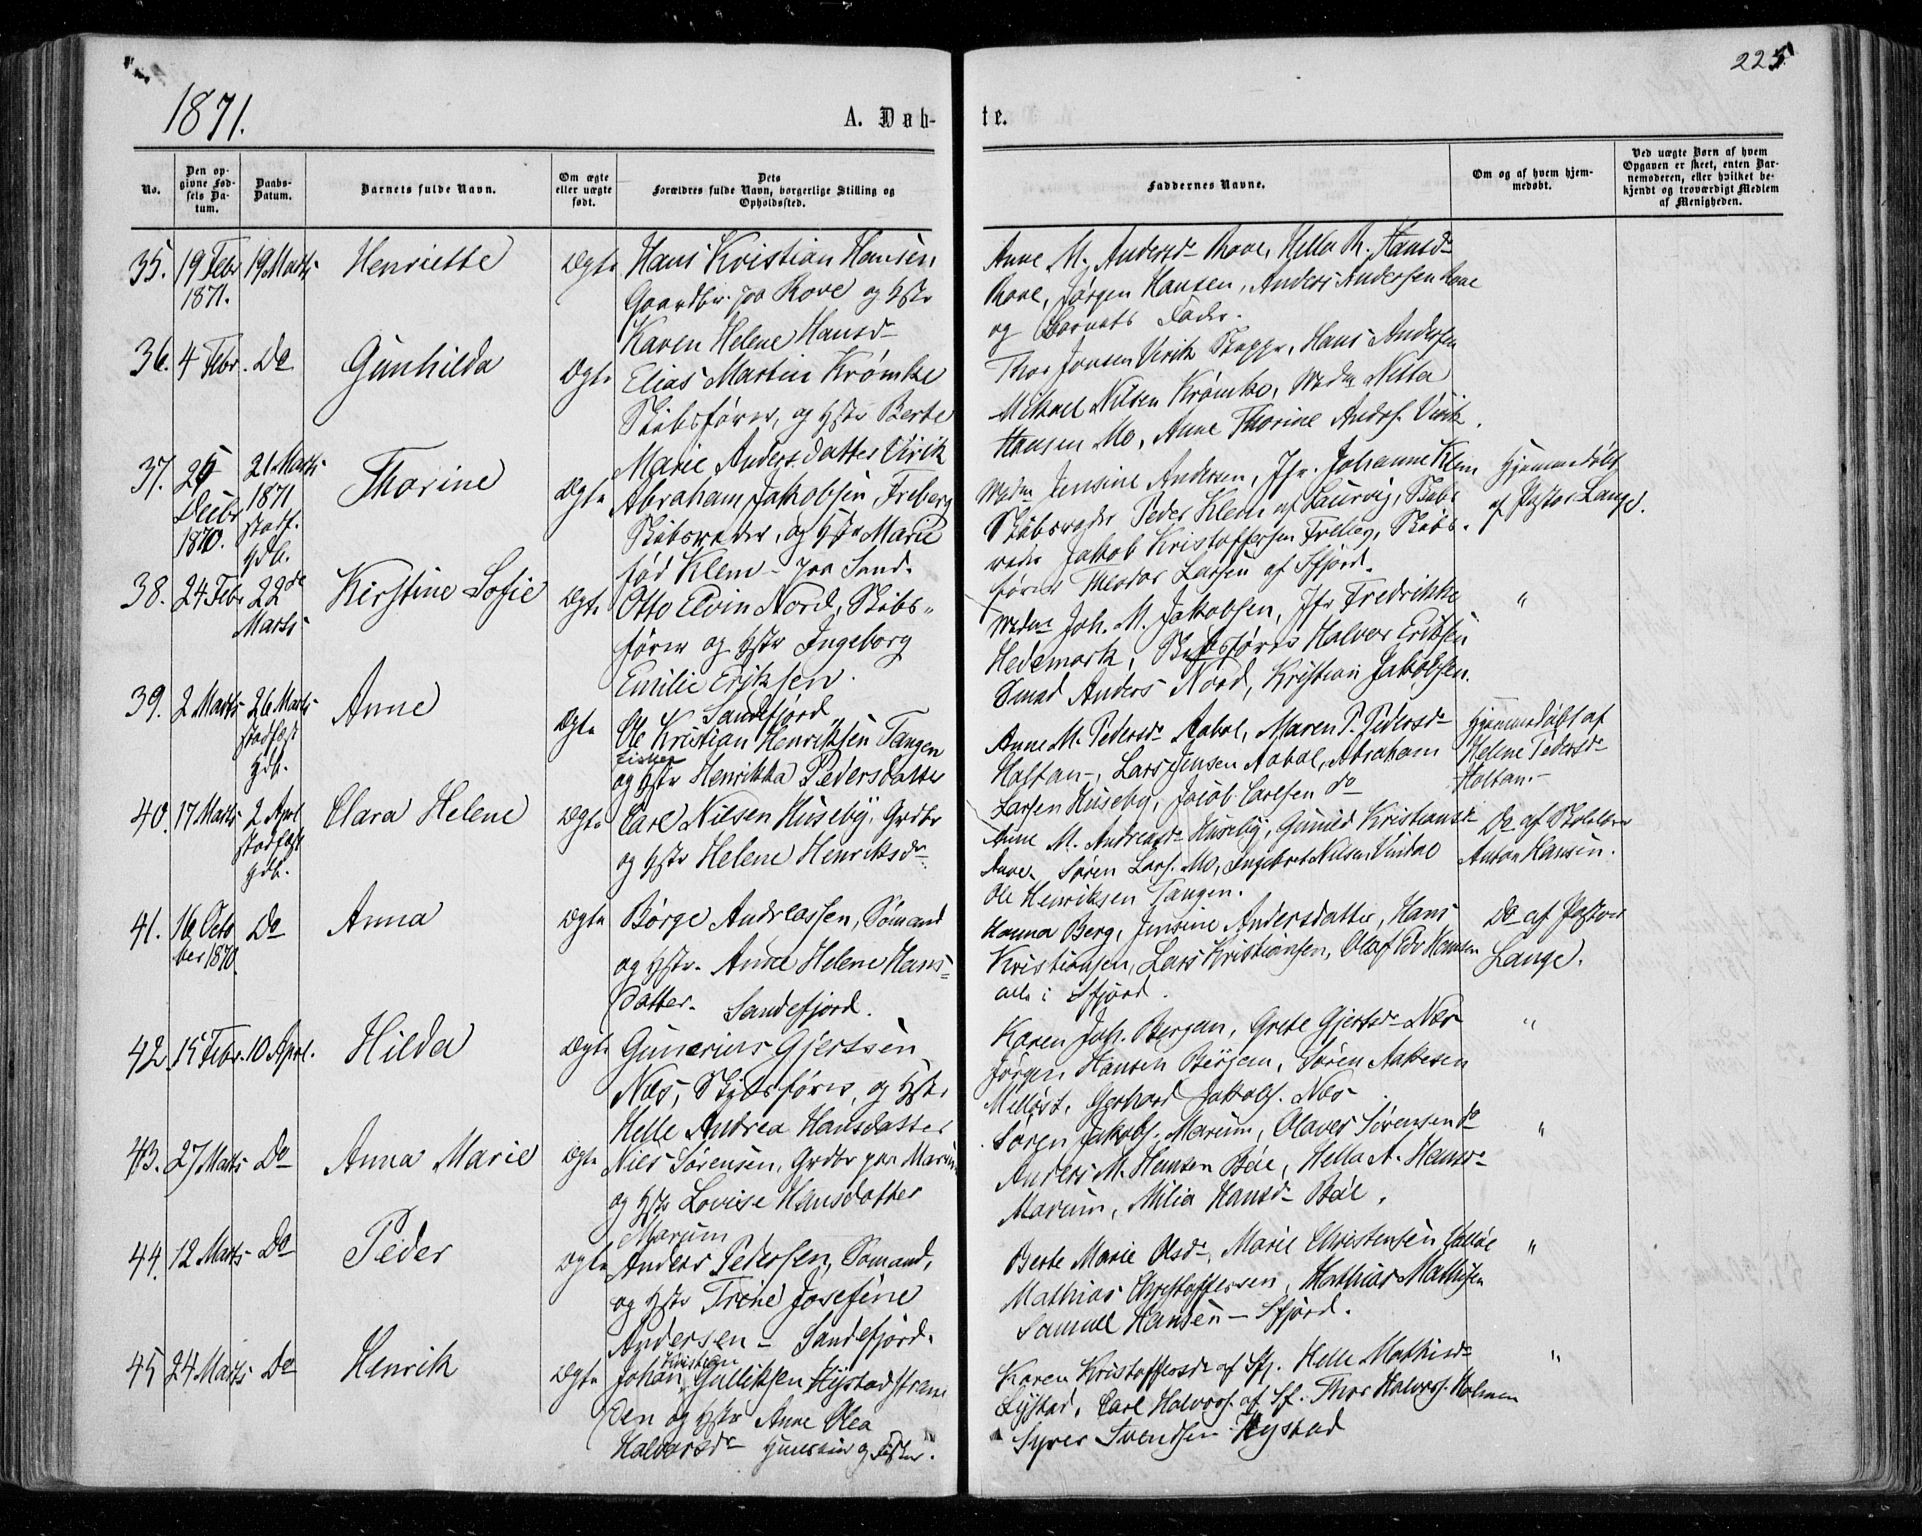 225
1871.
A. Døb-
te.
No.
Den op-
givne Fød-
sels Da-
tum.
Daabs-
Datum.
Barnets fulde Navn.
Om ægte
eller uægte
født.
Dets
Forældres fulde Navn, borgerlige Stilling og
Opholdssted.
Faddernes Navne.
Om og af hvem hjem-
medøbt.
Ved uægte Børn af hvem
Opgaven er skeet, enten Bar-
nemoderen, eller hvilket be-
kjendt og troværdigt Medlem
af Menigheden.
35. 19 Febr 19 Marts Henriette Ægte Hans Kristian Hansen,
1871.
Gaardbr. paa Rove og Hstr
Karen Helene Hansd
Anne M. Andersd Rove, Helle Hansd
Rove, Jørgen Hansen, Anders Andersen Rove
og Barnets Fader.
36. 4 Febr. Do Gunhilda Ægte Elias Martin Krømke
Skibsfører, og Hstr Berte
Marie Andersdatter Virik
Thor Jensen Virik Hans Andersen
Mikael Nilsen Krømke, Mdm Nilla
Hansen Mo, Anne Thorine Anders. Virik.
37. 25 21 Marts Thorine Ægte Abraham Jakobsen Freberg
Decbr 1871
1870. stadf.
hdb.
Skibsreder, og Hstr Marie
fød Klem - paa Sand.
Mdm Jensine Andersen, Jfr. Johanne Klem
Skibsreder Peder Klem af Laurvig, Skibs
reder Jakob Kristoffersen Freberg, Skibs.
fører Theodor Larsen af Sfjord.
Hjemmedøbt
af Pastor Lange.
38. 24 Febr 22de Kirstine Sofie Ægte Otto Elvin Nord, Skibs-
Marts
fører og Hstr Ingeborg
Emilie Eriksen.
Sandefjord
Mdm Joh. M. Jakobsen, Jfr Fredrikke
Hedemark, Skibsfører Halvor Eriksen
Smed Anders Nord, Kristian Jakobsen. "
39. 2 Marts 26 Marts Anne Ægte Ole Kristian Henriksen Tangen
stadfæst
hdb.
Fisker
og Hstr Henrikka Pedersdatter
Anne M. Pedersd Aabol, Maren P. Pedersd
Haltan, Lars Jensen Aabol, Abraham
Larsen Huseby, Jacob Carlsen do
Hjemmedøbt af
Helene Pedersd
Haltan.
40. 17 Marts 2 April Clara Helene Ægte Carl Nilsen Huseby, Grdbr
stadfæst
hdb.
og Hstr Helene Henriksd
Anne M. Andreasd Huseby, Gunild Kristiansd
Søren Lars. Mo, Ingebret Nilsen Vindal
Ole Henriksen Tangen.
Do af Skolelærer
Anton Hansen.
41. 16 Octo Do Anna Ægte Børge Andreassen, Sømand
ber 1870
og Hstr. Anne Helene Hans-
datter. Sandefjord.
Hanna Berg, Jensine Andersdatter, Hans
Kristiansen, Lars Kristiansen, Olaf Edv Hansen
alle i Sfjord.
Do af Pastor
Lange.
42. 15 Febr. 10 Apr. Hilda Ægte Gunerius Gjertsen
Næs, Skibsfører, og Hstr
Helle Andrea Hansdatter
Karen Joh. Bergan, Grete Gjertsd Næs
Jørgen Hansen Bergan, Søren Aakesen
Melløst, Gerhard Jakobs. Næs "
43. 27 Marts Do Anna Marie Ægte Niels Sørensen, Grdbr paa Marum
og Hstr Lovise Hansdatter
Marum
Søren Jakobs. Marum, Olaves Sørensen do
Anders M. Hansen Bøe, Hella A. Hansd
Marum, Milia Hansd Bøe. "
44. 12 Marts Do Peder Ægte Anders Pedersen, Sømand,
og Hstr Trine Josefine
Andersen - Sandefjord.
Berte Marie Olsd, Marie Christensen
Mathias Christoffersen, Mathias Mathisen
Samuel Hansen - Sfjord. "
45 24 Marts Do Henrik Ægte Johan Kristian Gulliksen Hystadstran
den og Hstr Anne Olea
Halvorsd Huusmand og Fisker.
Karen Kristoffersd af Sfj. Helle Mathisd
Hystad, Carl Halvors. af Sf. Thor Halvors. Holmen
Syver Svendsen Hystad "